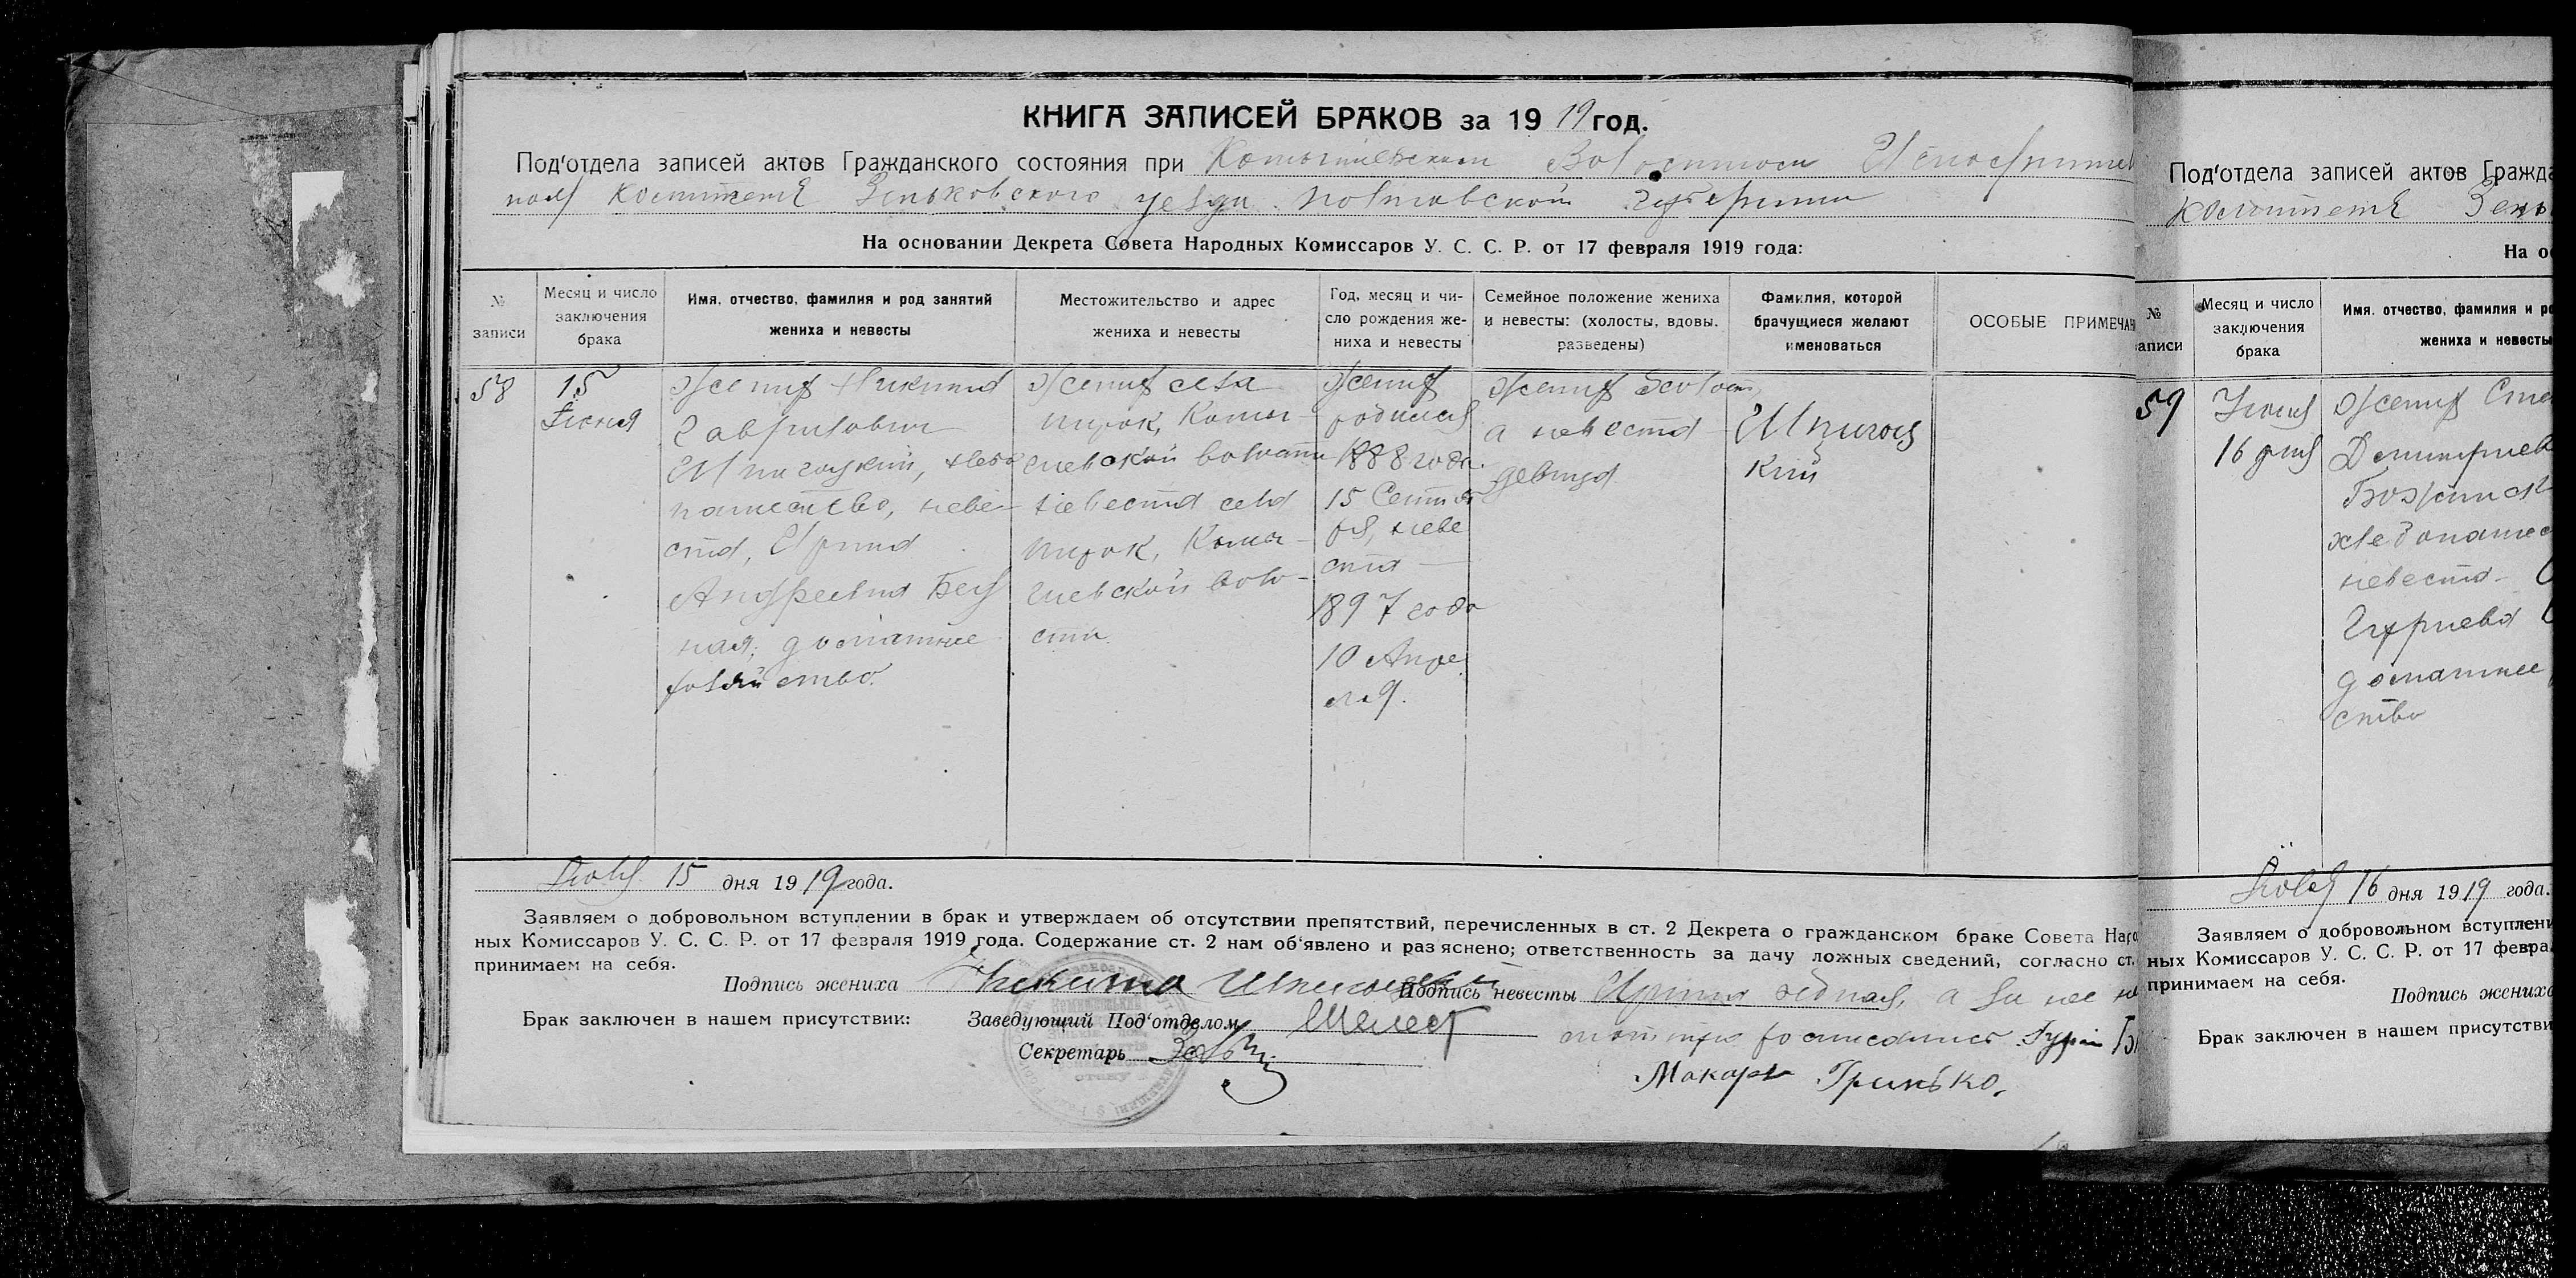 КНИГА ЗАПИСЕЙ БРАКОВ за 1919 год.
Под'отдела записей актов Гражданского состояния при Комышевском Волостном
Комитете Зеньковского уезда Полтавской губернии
На основании Декрета Совета Народных Комиссаров У. С. С. Р. от 17 февраля 1919 года:
№ записи
Месяц и число заключения брака
Имя, отчество, фамилия и род занятий жениха и невесты
Местожительство и адрес жениха и невесты
Год, месяц и чи-
сло рождения же-
ниха и невесты
Семейное положение жениха и невесты: (холосты, вдовы, разведены)
Фамилия, которой брачущиеся желают именоваться
ОСОБЫЕ ПРИМЕЧАН
58
15
Июня
Жених Никита
Гаврилович
Шпигоцкий, хлебо
пашество, неве
ста, Ирина
Андреевна Бед
ная, домашнее
хозяйство.
Жених села
Шурок, Комы-
шевской волости
невеста села
Шурок, Комы-
шевской воло-
сти
Жених
родился
1888 года
15 Сентяб
ря, неве
ста
1897 года
10 Апре
ля.
Жених холост,
а невеста
девица
Шпигоц
кий
15 дня 1919 года.
Заявляем о добровольном вступлении в брак и утверждаем об отсутствии препятствий, перечисленных в ст. 2 Декрета о гражданском браке Совета Наро
ных Комиссаров У. С. С. Р. от 17 февраля 1919 года. Содержание ст. 2 нам об'явлено и раз'яснено; ответственность за дачу ложных сведений, согласно ст.
принимаем на себя.
Подпись жениха Никита Шпигоцкий Подпись невесты Ирина Бедная, а за нее не
Брак заключен в нашем присутствии: Заведующий Под'отделом Шелест
грамотную росписались Гурий
Секретарь
Макар Гринько.
Под'отдела записей актов Гражда
Комитете Зень
На ос
№
записи
Месяц и число заключения брака
Имя, отчество, фамилия и ро
жениха и невесты
59
Июня
16 дня
Жених
Дмитриев
хлебопашес
невеста
Гурьева
домашнее
ство
16 дня 1919 года.
Заявляем о добровольном вступлени
ных Комиссаров У. С. С. Р. от 17 февра
принимаем на себя.
Подпись жениха
Брак заключен в нашем присутстви